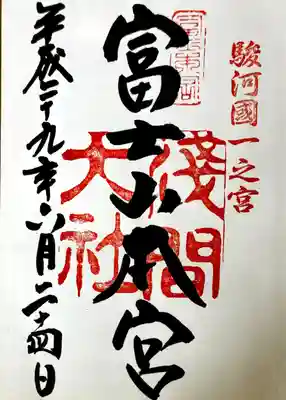 駿河國一之宮
富士山本宮
淺間
大社
平成二十九年六月二十四日